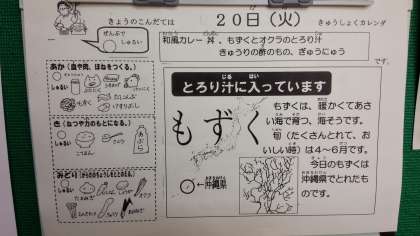 きょうのこんだては
20日(火)
きゅうしょくカレンダ
ぜんぶで
しゅるい
和風カレー丼、もずくとオクラのとろり汁
きゅうりの酢のもの、ぎゅうにゅう
です。
あか(血や肉、ほねをつくる。)
しゅるい
とろり汁に入っています
もずく
もずくは、暖かくてあさ
い海で育つ、海そうです。
旬(たくさんとれて、お
いしい時)は4〜6月です。
今日のもずくは
沖縄県でとれたも
のです。
←沖縄県
き(ねつや力のもとになる。)
しゅるい
ごはん
あぶら
みどり(からだのちょうしをととのえる。)
しゅるい
たまねぎ